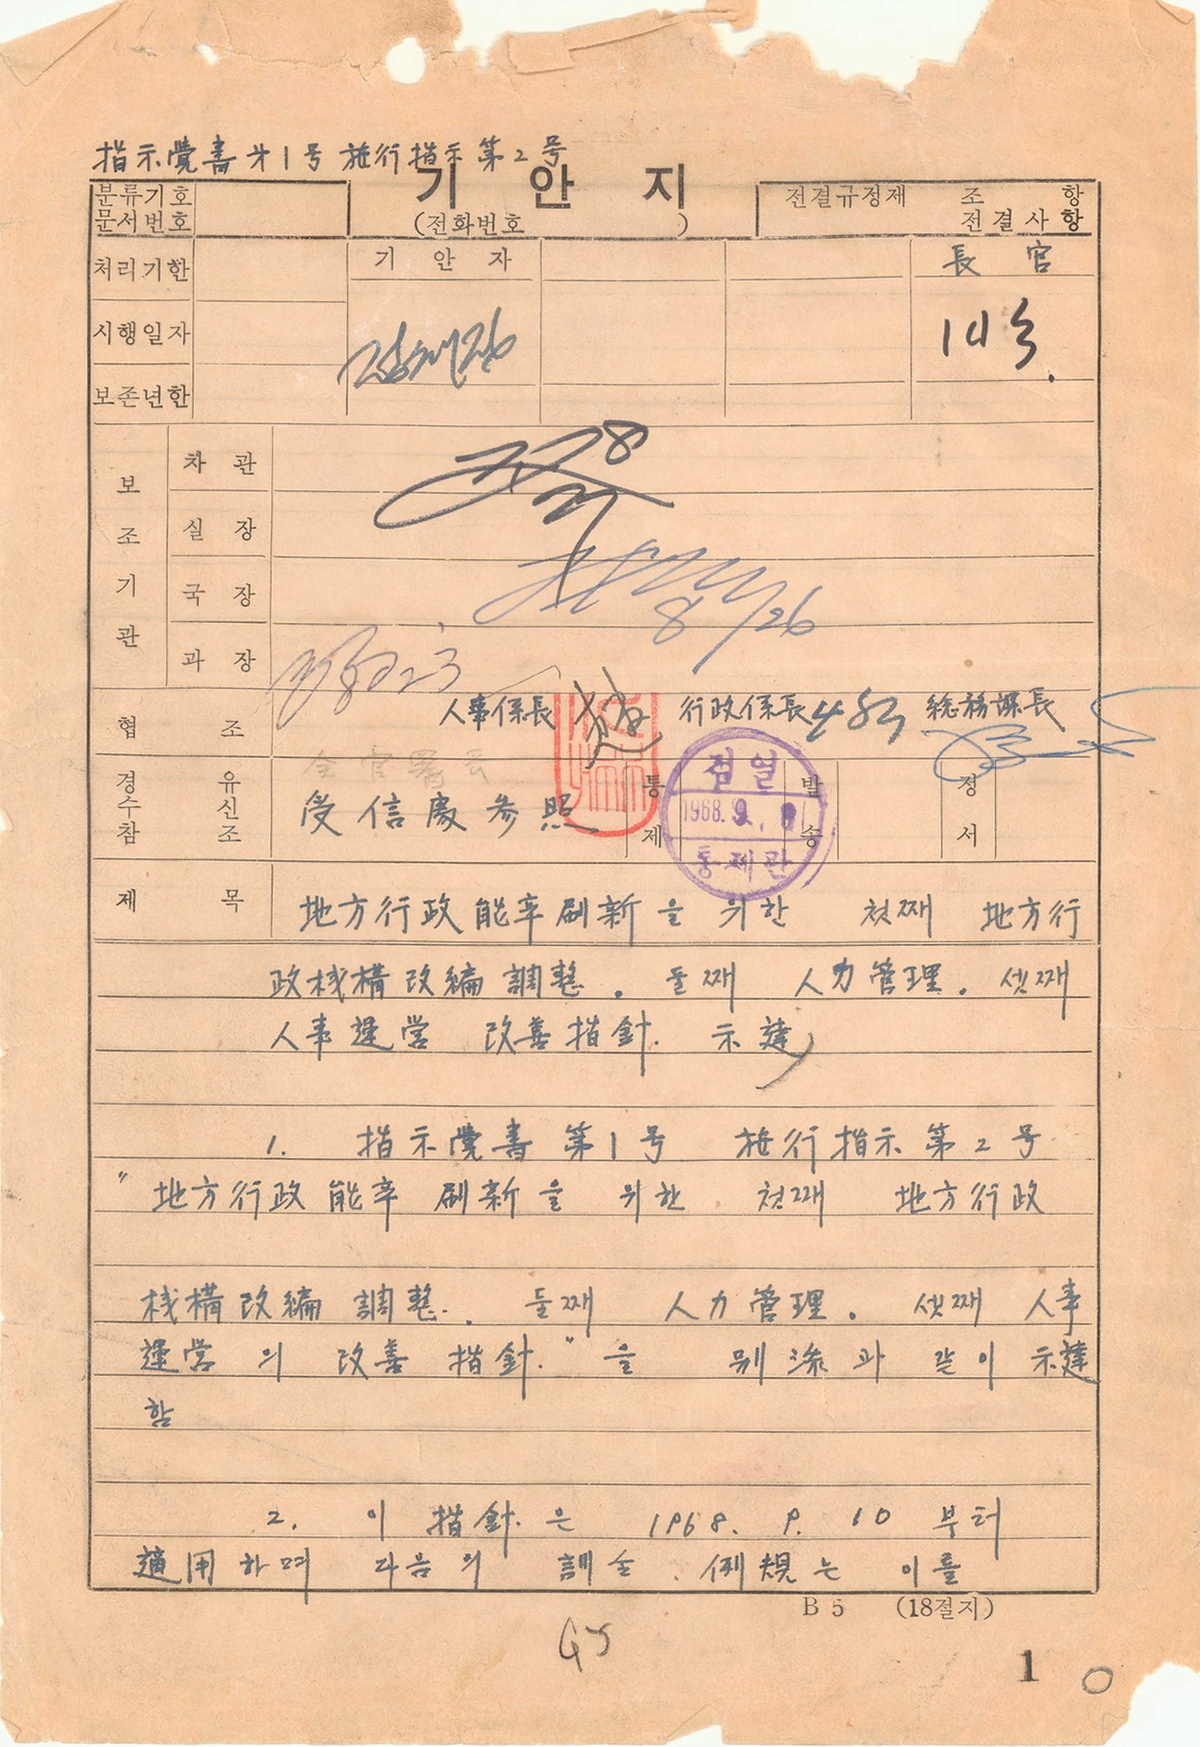 指示覺書 第1号 施行指示 第2号
기 안 지
분류기호 문서번호
(전화번호 )
전결규정제 조 항
전결사항
처리기한
기 안 자
長 官
시행일자
보존년한
보조기관
차 관
실 장
국 장
8/26
과 장
협 조
人事係長 行政係長 総務課長
경유 수신 참조
受信處参照
통제
검열
1968. 9.
통제관
발송
정서
제 목
地方行政 能率刷新을 위한 첫째 地方行
政机構改編調整. 둘째 人力管理. 셋째
人事運営 改善指針. 示達
1. 指示覺書 第1号 施行指示 第2号
"地方行政 能率 刷新을 위한 첫째 地方行政
机構改編 調整. 둘째 人力管理. 셋째 人事
運営의 改善 指針."을 別添과 같이 示達
함
2. 이 指針은 1968. 9. 10 부터
適用하며 다음의 訓令. 例規는 이를
B5 (18절지)
1